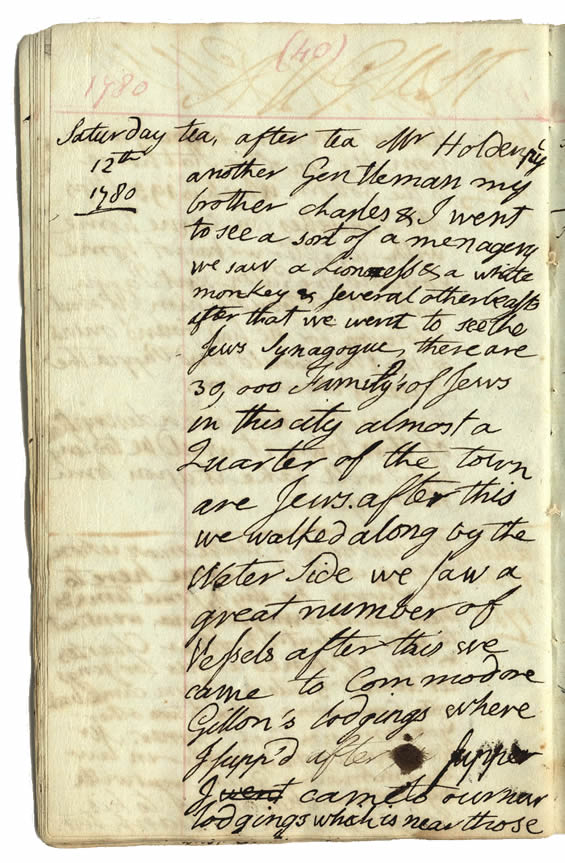 (40)
1780 August
Saturday
12th
1780
tea, after tea Mr Holden, my
another Gentleman my
brother charles & I went
to see a sort of a menagery
we saw a Lioness & a white
monkey & several other beasts
after that we went to see the
Jews Synagogue, there are
30,000 Family's of Jews
in this city almost a
Quarter of the town
are Jews. after this
we walked along by the
Water Side we saw a
great number of
Vessels after this we
came to Commodore
Gillon's lodgings where
I supp'd after supper
I went came to our new
lodgings which is near those